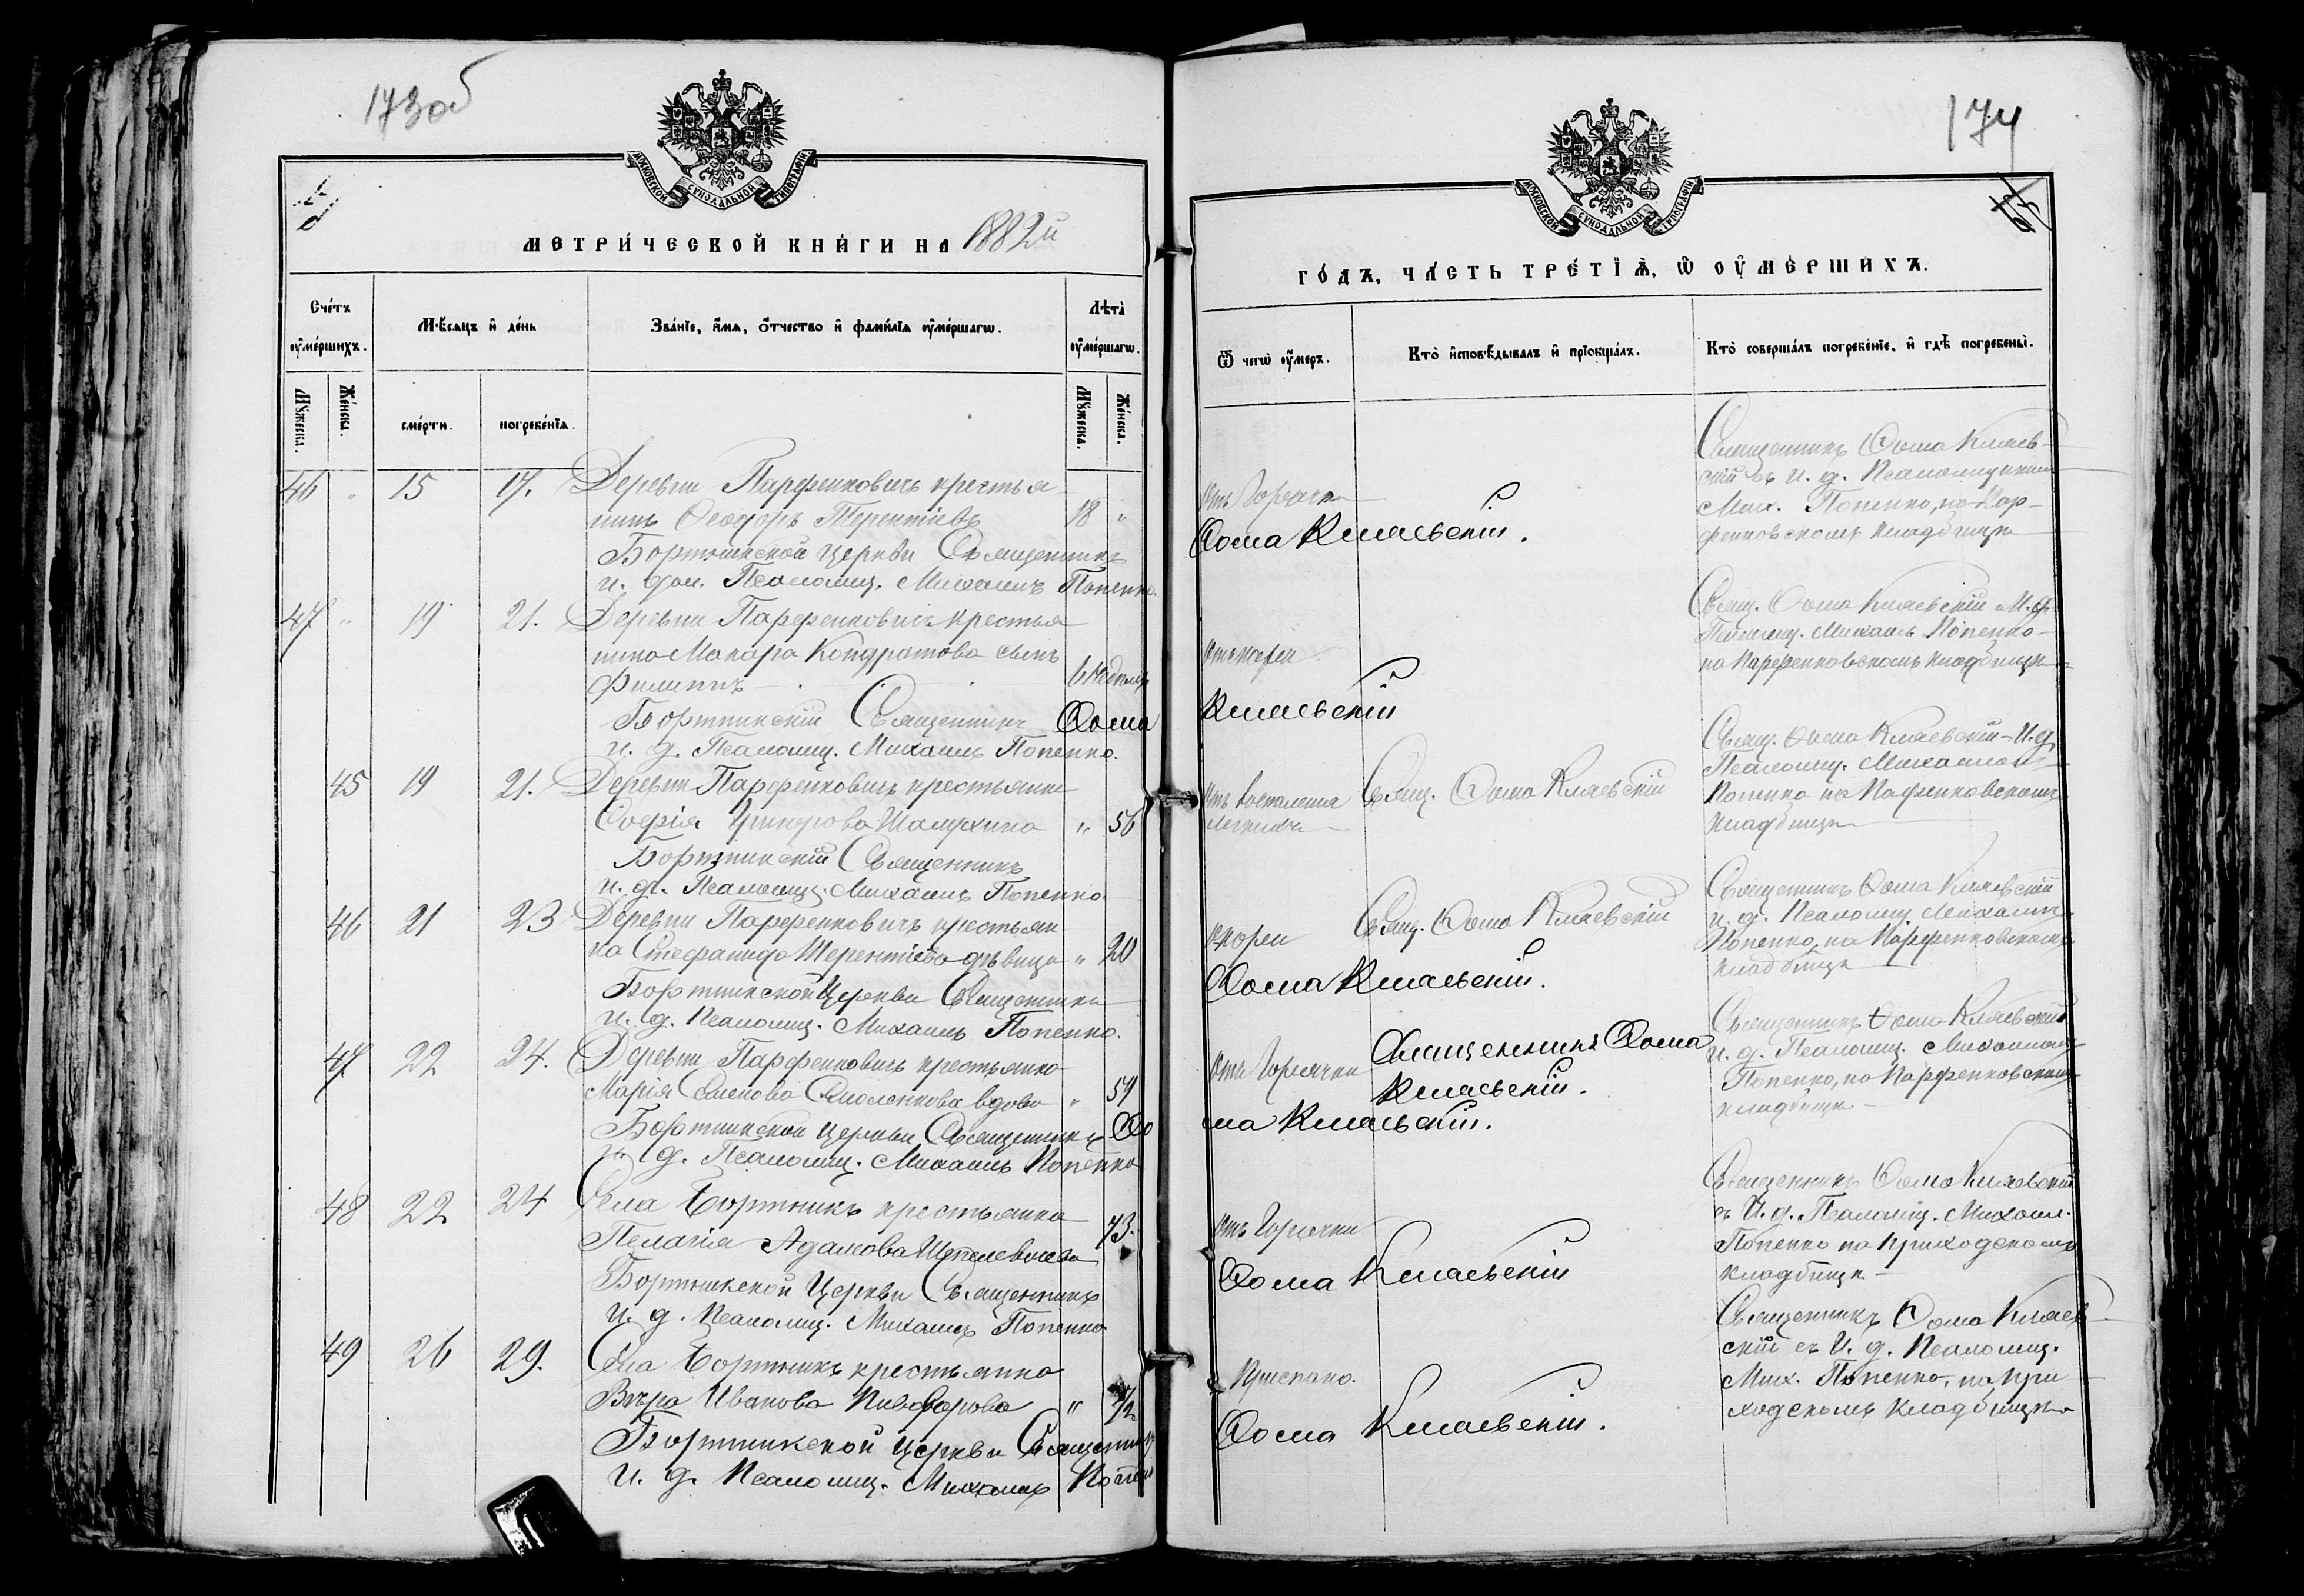 173об
МОСКОВСКОЙ СѴНОДАЛЬНОЙ ТИПОГРАФІИ
МЕТРИ́ЧЕСКОЙ КНИ́ГИ НА 1882й
Сче́тъ ᲂу҆ме́ршихъ.
Мѣ́сѧцъ и҆ де́нь
Зва́нїе, и҆́мѧ, ѻ҆́тчество и҆ фами́лїѧ ᲂу҆ме́ршагѡ.
Лѣта̀ ᲂу҆ме́ршагѡ.
Мꙋ́жеска.
Же́нска.
сме́рти.
погребе́нїѧ.
Мꙋ́жеска.
Же́нска.
46 " 15 17. Деревни Парфенковичъ крестья-
нинъ Ѳеодоръ Терентіевъ 18 "
Бортникской Церкви Священникъ
и. дол. Псаломщ. Михаилъ Попенко.
47 " 19 21. Деревни Парфенковичъ крестья
нина Макара Кондратова сынъ
Филиппъ
Бортникскій Священникъ Ѳома
и. д. Псаломщ. Михаилъ Попенко.
45 19 21. Деревни Парфенковичъ крестьянка
Софія Григорова " 56
Бортникскій Священникъ
и. д. Псаломщ. Михаилъ Попенко
46 21 23 Деревни Парфенковичъ крестьян-
ка Стефанида Терентіева дѣвица " 20
Бортникской Церкви Священникъ
и. д. Псаломщ. Михаилъ Попенко.
47 22 24. Деревни Парфенковичъ крестьянка
Марія Семенова Смоленкова вдова "
Бортникской Церкви Священникъ Ѳо
и. д. Псаломщ. Михаилъ Попенко
48 22 24 Села Бортникъ крестьянка
Пелагія Адамова 73.
Бортникской Церкви Священникъ
И. д. Псаломщ. Михаилъ Попенко
49 26 29. Села Бортникъ крестьянка
Вѣра Иванова Никифорова " 1/2
Бортникской Церкви Священникъ
И. д. Псаломщ. Михаилъ
174
МОСКОВСКОЙ СѴНОДАЛЬНОЙ ТИПОГРАФІИ
ГО́ДЪ, ЧА́СТЬ ТРЕ́ТІѦ, Ѡ҆ ОУ҆МЕ́РШИХЪ.
Ѿ чегѡ̀ ᲂу҆́меръ.
Кто̀ и҆сповѣ́дывалъ и҆ прїобща́лъ.
Кто̀ соверша́лъ погребе́нїе, и҆ гдѣ̀ погребены̀.
Отъ Горячки
Ѳома Кляевскій.
Священникъ Ѳома Кляев-
скій съ и. д. Псаломщикомъ
Мих. Попенко, на Пар-
фенковскомъ кладбищѣ
Отъ кори
Кляевскій
Свящ. Ѳома Кляевскій и. д.
Псаломщ. Михаилъ Попенко
на Парфенковскомъ кладбищѣ
Отъ воспаленія
легкихъ
Свящ. Ѳома Кляевскій
Свящ. Ѳома Кляевскій-И. д.
Псаломщ. Михаилом
Попенко на Пафенковскомъ
кладбищѣ
Свящ. Ѳома Кляевскій
Ѳома Кляевскій.
Священникъ Ѳома Кляевскій
и. д. Псаломщ. Михаилъ
Попенко, на Парфенковскомъ
кладбищѣ
Отъ Горячки
Священникъ Ѳома
Кляевскій.
ма Кляевскій.
Священникъ Ѳома Кляевскій
и. д. Псаломщ. Михаиломъ
Попенко, на Парфенковскомъ
кладбищѣ
Отъ Горячки
Ѳома Кляевскій
Священникъ Ѳома Кляевскій
съ И. д. Псаломщ. Михаил.
Попенко на приходскомъ
кладбищѣ
Приспана.
Ѳома Кляевскій.
Священникъ Ѳома Кляев-
скій съ И. д. Псаломщ.
Мих. Попенко, на при
ходскомъ кладбищѣ